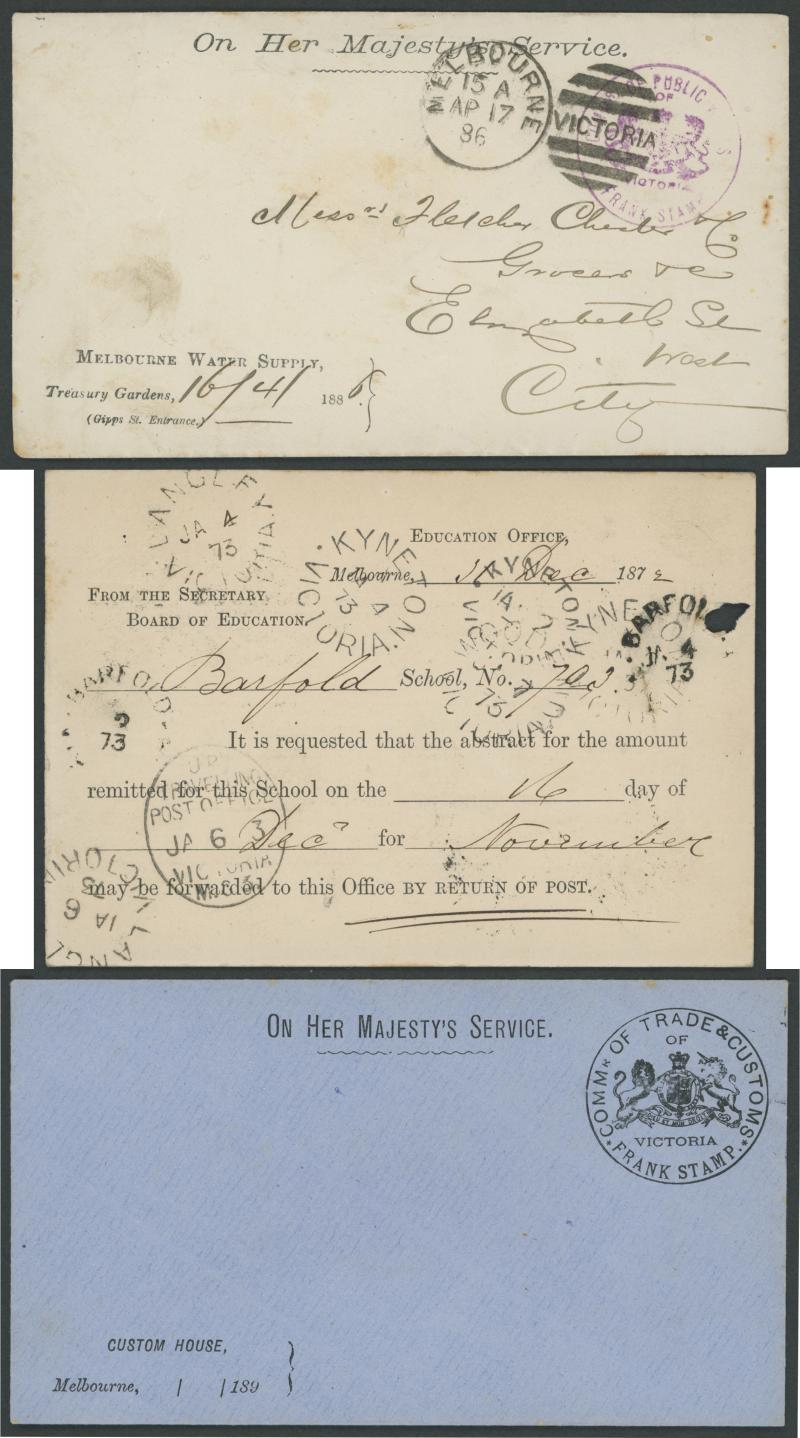 On Her Majesty's Service.
MELBOURNE
15 A
AP 17
86
VICTORIA
PUBLIC
OF
VICTORIA
FRANK STAMP
Messrs Fletcher Chester & Co
Grocers &c
Elizabeth St
West
City
MELBOURNE WATER SUPPLY,
Treasury Gardens, 16/4/ 1886
(Gipps St. Entrance.)
LANGLEY
JA 4
73
VICTORIA
KYNETON
VICTORIA
JA 4
73
EDUCATION OFFICE,
Melbourne, 16 Dec 1872
FROM THE SECRETARY
BOARD OF EDUCATION.
KYNETON
BARFOLD
JA 4
73
BARFO
73
Barfold School, No.
It is requested that the abstract for the amount
remitted for this School on the 16 day of
UP
TRAVELLING
POST OFFICE
JA 6 3
VICTORIA
No 3
Decr for November
may be forwarded to this Office BY RETURN OF POST.
JA 6
LANGL
ON HER MAJESTY'S SERVICE.
COMMR OF TRADE & CUSTOMS
OF
VICTORIA
FRANK STAMP.
CUSTOM HOUSE,
Melbourne, / /189